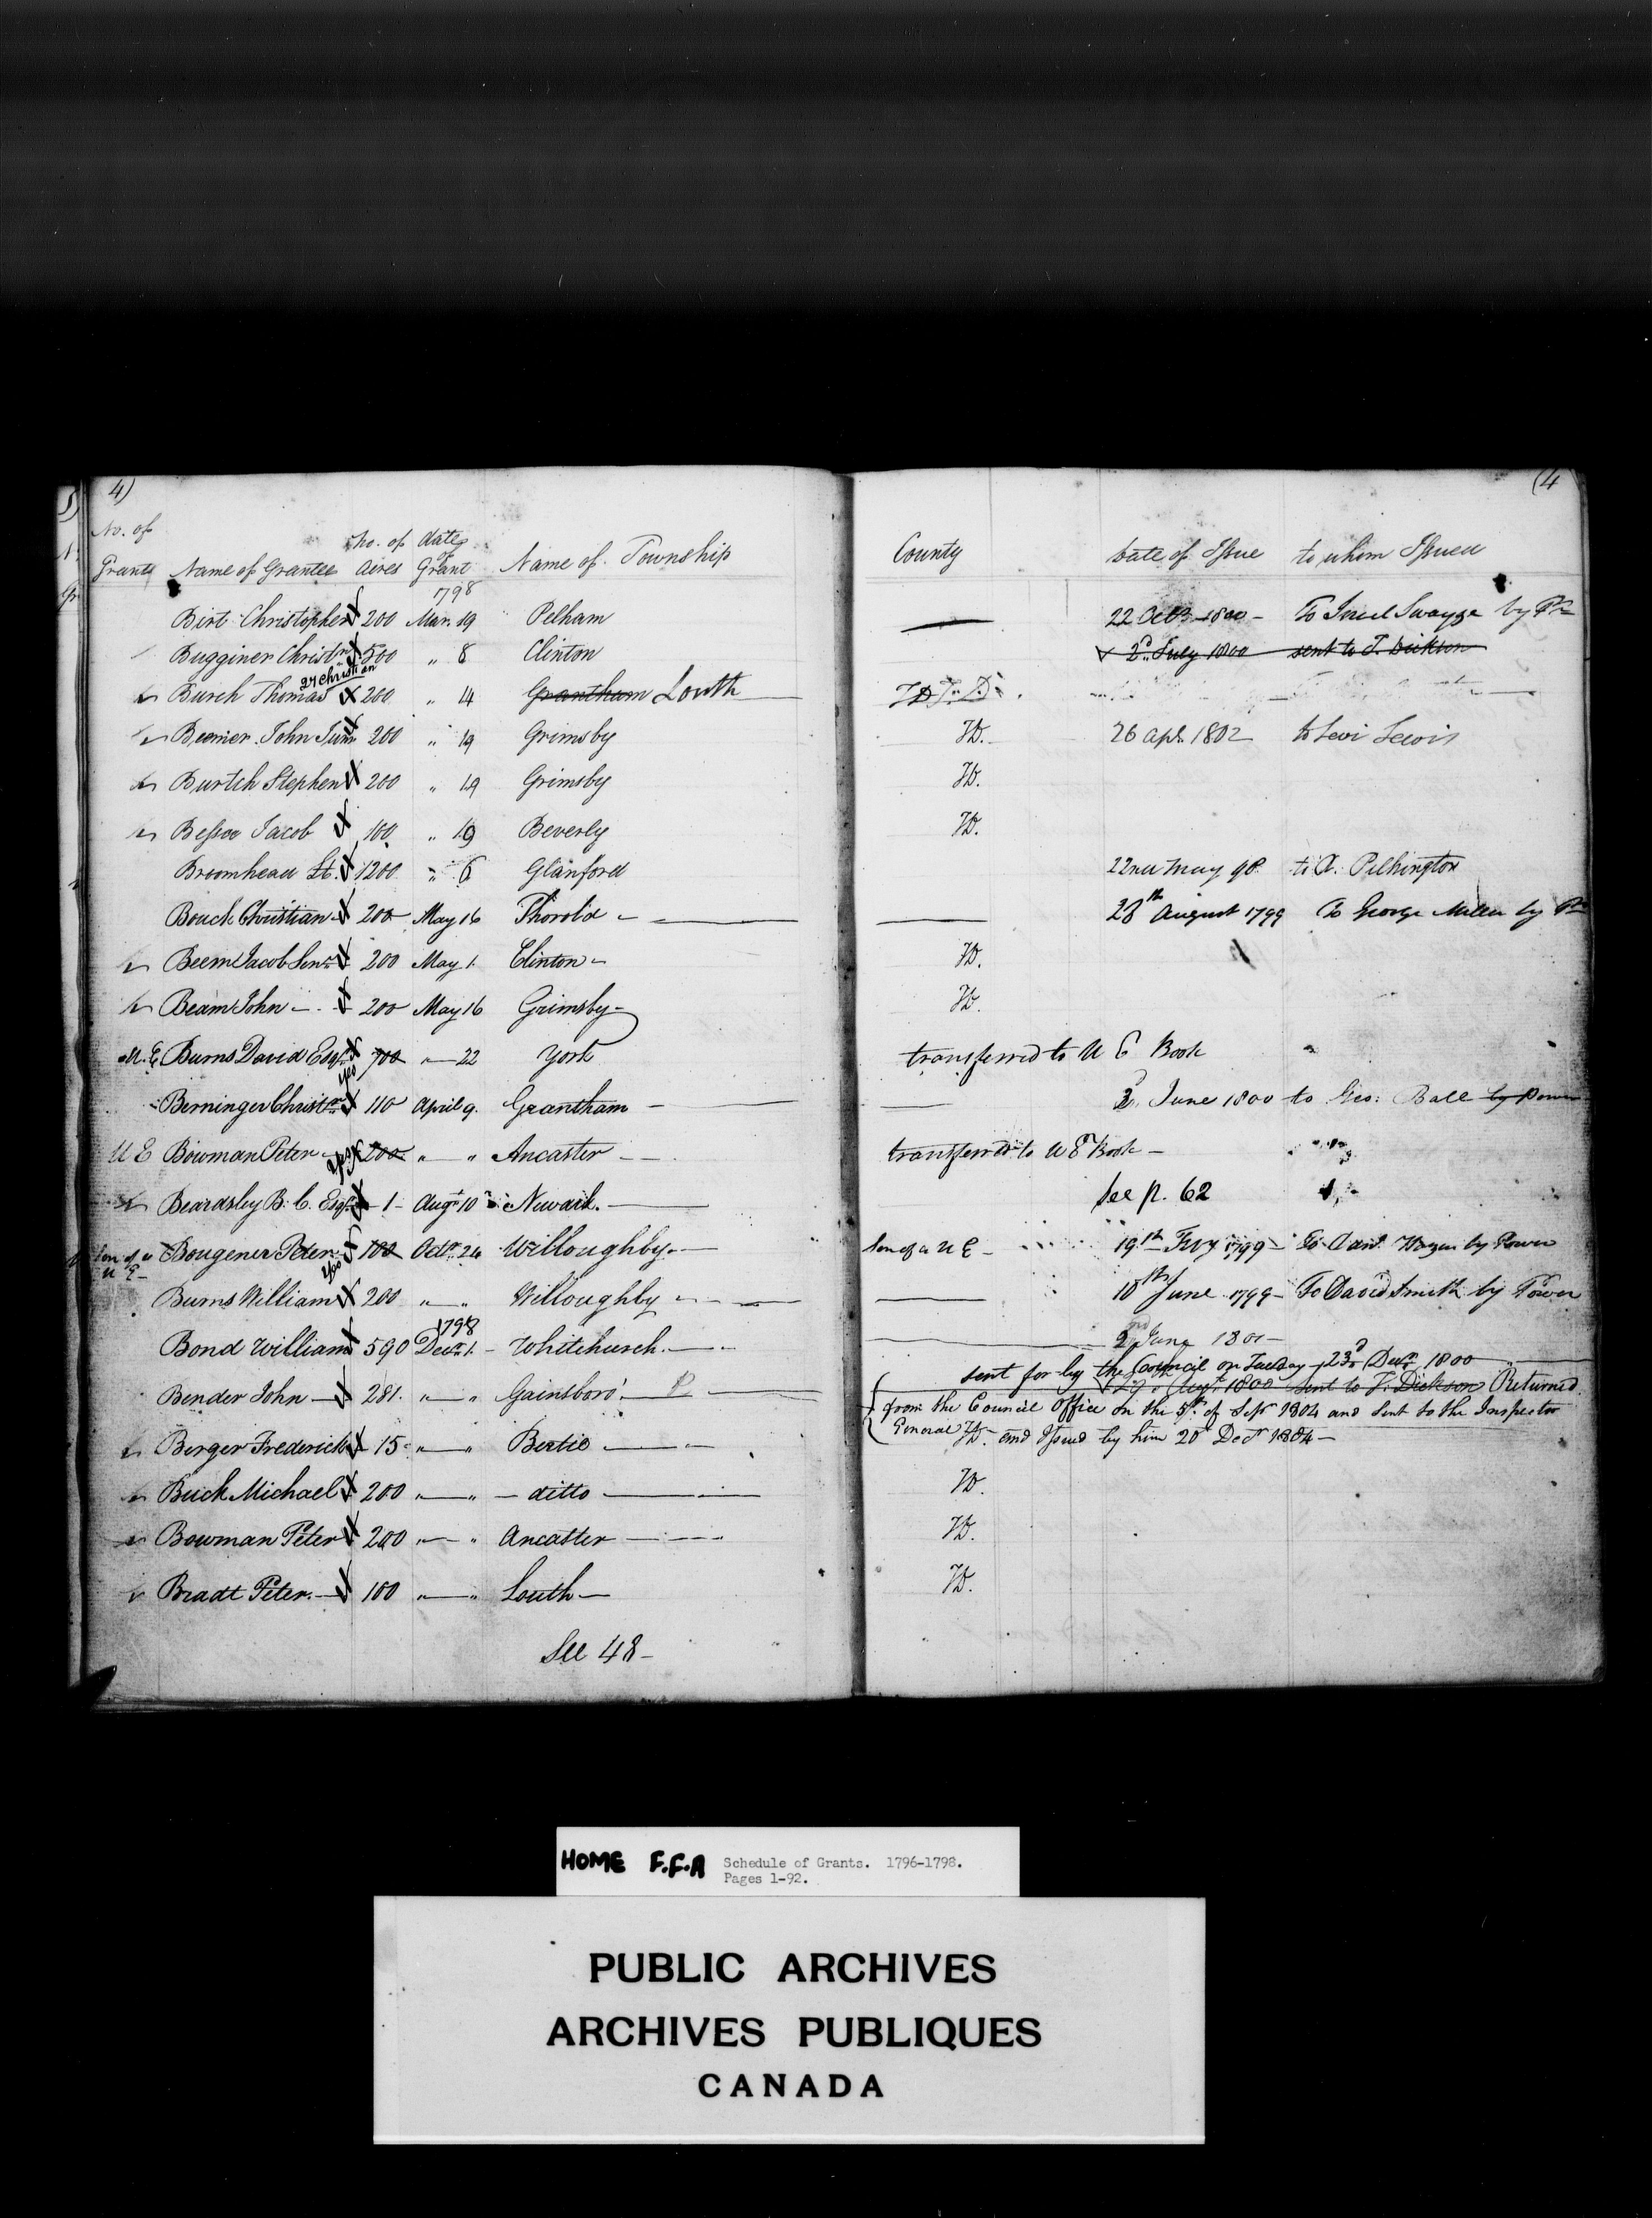 4)
(4
No. of Grants Name of Grantee No. of Acres date of Grant Name of Township County Date of Issue to whom Issued
1798
Birt Christopher 200 Mar. 19 Pelham 22 Octr 1800 - To Israel Swayze by Pr
Bugginer Christn. 500 " 8 Clinton 2d. July 1800 sent to T. Dickson
qr Christian
Burch Thomas 200 " 14 Grantham Louth
Beemer John Junr 200 " 19 Grimsby HD. 26 Apl. 1802 to Levi Lewis
Burtch Stephen 200 " 19 Grimsby HD.
Bessee Jacob 100 " 19 Beverly HD.
Broomhead Lt. 1200 " 6 Glanford 22nd May 98 to A. Pilkington
Bouck Christian 200 May 16 Thorold - 28th August 1799 To George Miller by Pr
Beem Jacob Senr 200 May 1. Clinton - HD.
Beam John - 200 May 16 Grimsby - HD.
U.E Burns David Esqr. 700 " 22 York transferred to U E Book
yes
Berninger Christr. 110 April 9. Grantham - 3d. June 1800 to Geo: Ball by Power
U E Bowman Peter 200 " " Ancaster - transferred to U E Book -
yes
Beardsley B. C. Esqr. 1 - Augt 10 Newark. See p. 62
son of a U E - Bougener Peter 100 Octr. 24 Willoughby. Son of a U E - 19th Fevy 1799 - To Adm Hazen by Power
yes
Burns William 200 " " Willoughby 10th June 1799 - To David Smith by Power
1798
Bond William 590 Decr. 1. Whitchurch. 2nd June 1801 -
sent for by the Council on Tuesday 23d Decr 1800
Bender John - 281. " " Gainsboro'. P 29. Augt. 1800 sent to T. Dickson Returned
from the Council Office on the 5th. of Sepr 1804 and sent to the Inspector
Berger Frederick 15 " " Bertie General HD. and Issued by him 20 Decr 1804 -
Buck Michael 200 " " - ditto HD.
Bowman Peter 200 " " Ancaster HD.
Bradt Peter. 100 " " Louth - HD.
See 48 -
HOME F.F.A Schedule of Grants. 1796-1798.
Pages 1-92.
PUBLIC ARCHIVES
ARCHIVES PUBLIQUES
CANADA